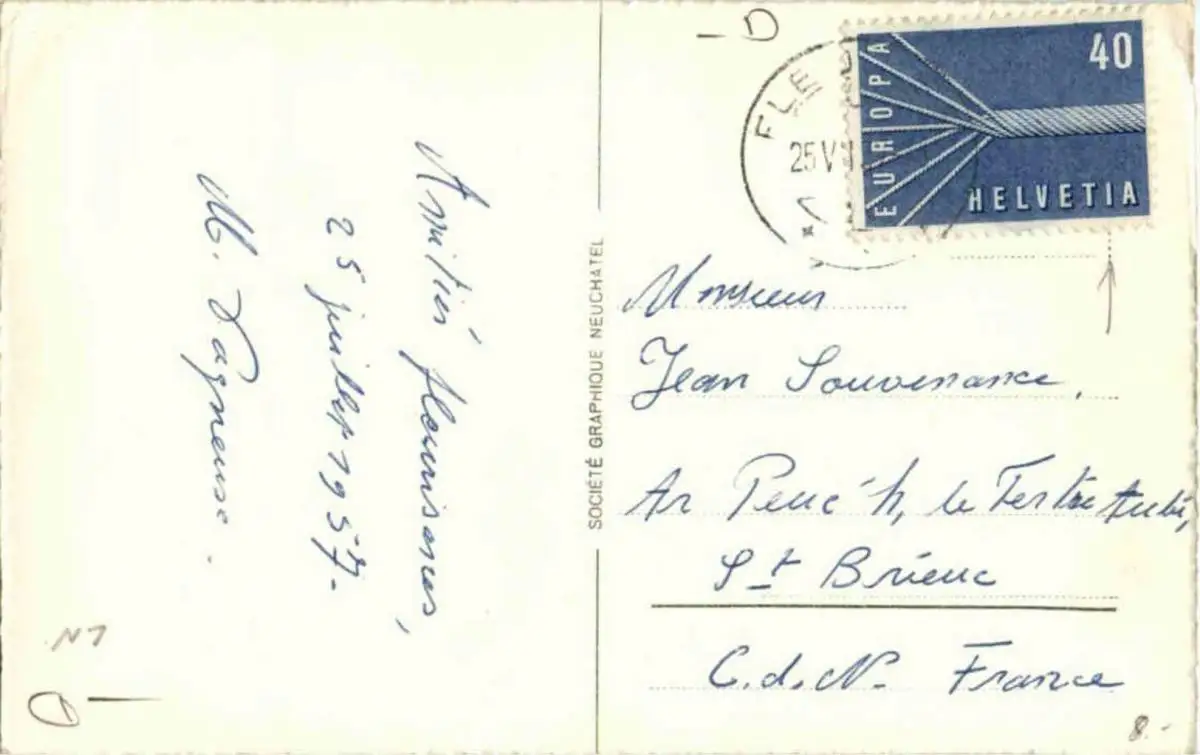 Amitiés fleurisanes,
25 juillet 1957.
M. Vagneuse.
SOCIÉTÉ GRAPHIQUE NEUCHATEL
D
FLE
25 VII
EUROPA
40
HELVETIA
Monsieur
Jean Souvenance,
Ar Peuc'h, le Tertre Aubé,
St Brieuc
C.d.N. France
N1
D
8.-